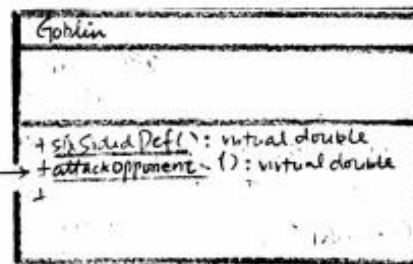 Goblin
+ sixSidedDef(): virtual double
→ + attackOpponent (): virtual double
+